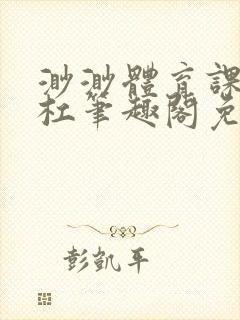 渺渺體育課
杜筆趣閣免
彭凱平